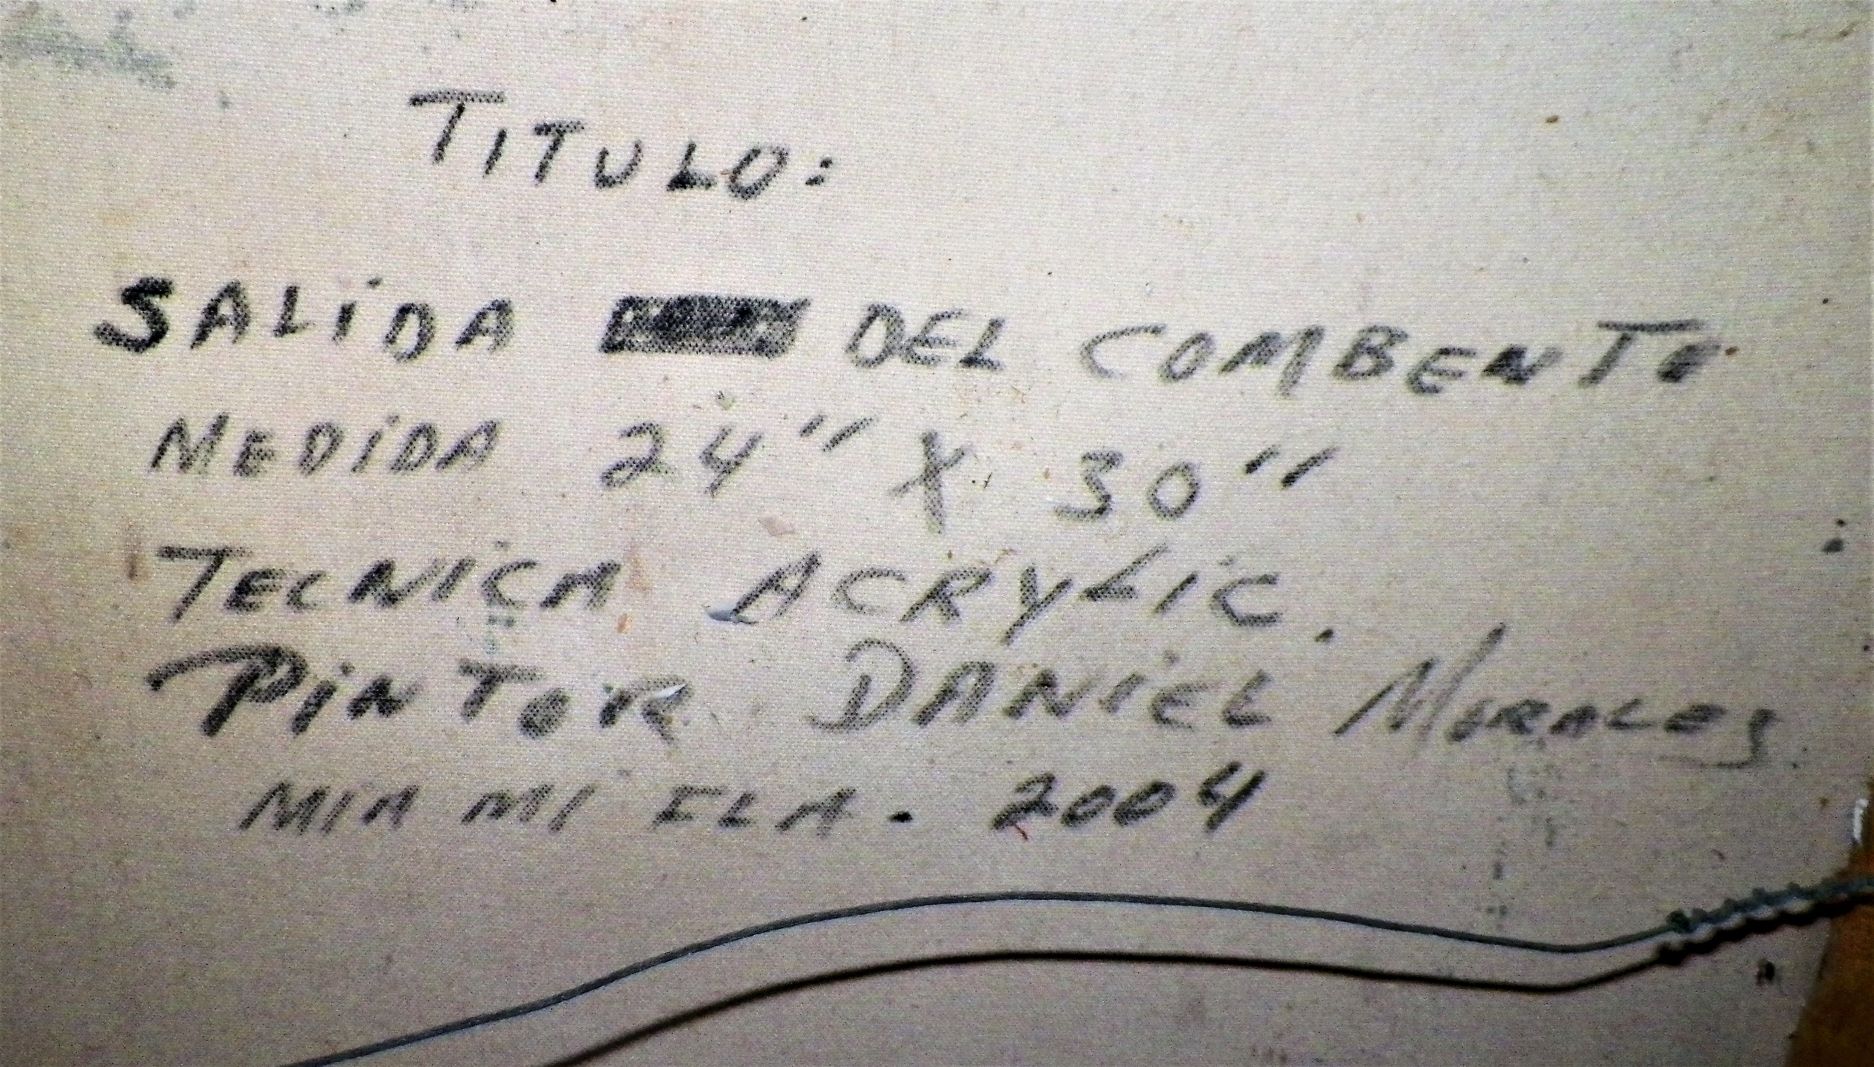 TITULO:
SALIDA DEL COMBENTE
MEDIDA 24" X 30"
TECNICA ACRYLIC.
PINTOR DANIEL MORALES
MIAMI FLA. 2004